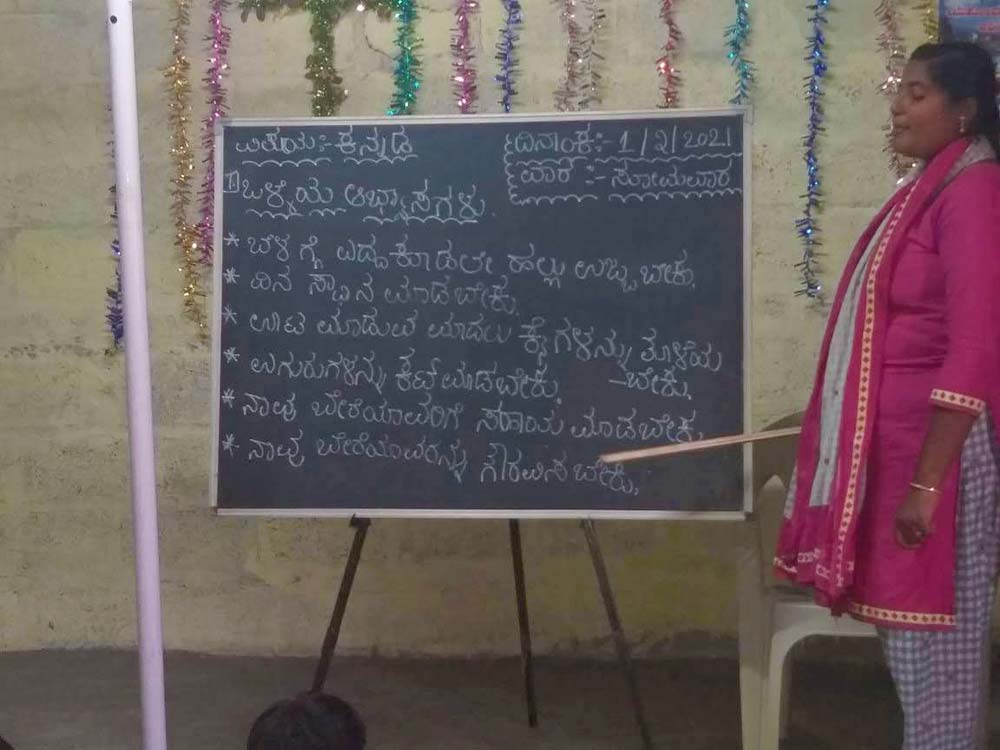 ವಿಷಯ:- ಕನ್ನಡ
ದಿನಾಂಕ:- 1/2/2021
ವಾರ :- ಸೋಮವಾರ
1) ಒಳ್ಳೆಯ ಅಭ್ಯಾಸಗಳು.
* ಬೆಳಗ್ಗೆ ಎದ್ದಕೂಡಲೇ ಹಲ್ಲು ಉಜ್ಜಬೇಕು.
* ದಿನ ಸ್ನಾನ ಮಾಡಬೇಕು.
* ಊಟ ಮಾಡುವ ಮೊದಲು ಕೈಗಳನ್ನು ತೊಳೆಯ
–ಬೇಕು.
* ಉಗುರುಗಳನ್ನು ಕಟ್ ಮಾಡಬೇಕು.
* ನಾವು ಬೇರೆಯಾವರಿಗೆ ಸಹಾಯ ಮಾಡಬೇಕು.
* ನಾವು ಬೇರೆಯಾವರನ್ನು ಗೌರವಿಸಬೇಕು.